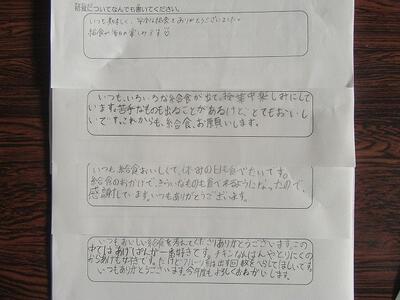 給食についてなんでも書いてください。
いつも美味しく、安心な給食をありがとうございました。
給食が毎日の楽しみです☺
いつも、いろいろな給食が出て、授業中楽しみにして
います。苦手なものも出ることがあるけど、とてもおいし
いです。これからも、給食、お願いします。
いつも給食おいしくて、休みの日も食べたいです。
給食のおかげで、きらいなものも食べれるようになったので、
感謝しています。いつもありがとうございます。
いつもおいしい給食を考えてくださりありがとうございます。この
中ではあげぱんが一番好きです。チキンなんばんやとりにくの
からあげも好きです。だけどフルーツ系は出す回数をへらしてほしいです。
いつもありがとうございます。今年度もよろしくおねがいします。